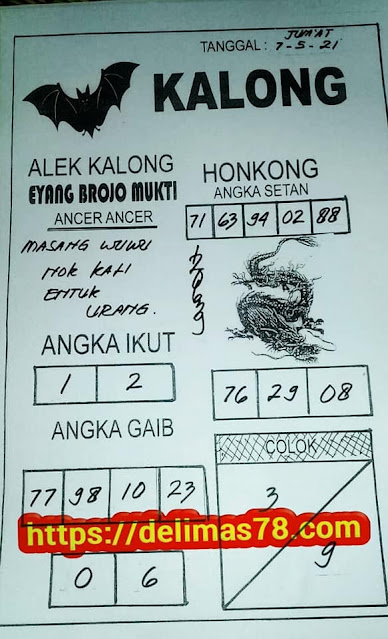 JUM'AT
TANGGAL : 7-5-21
KALONG
ALEK KALONG
EYANG BROJO MUKTI
ANCER ANCER
MASANG WUWU
NOK KALI
ENTUK
URANG.
ANGKA IKUT
1 2
ANGKA GAIB
77 98 10 23
https://delimas78.com
0 6
HONKONG
ANGKA SETAN
71 63 94 02 88
76 29 08
COLOK
3
9